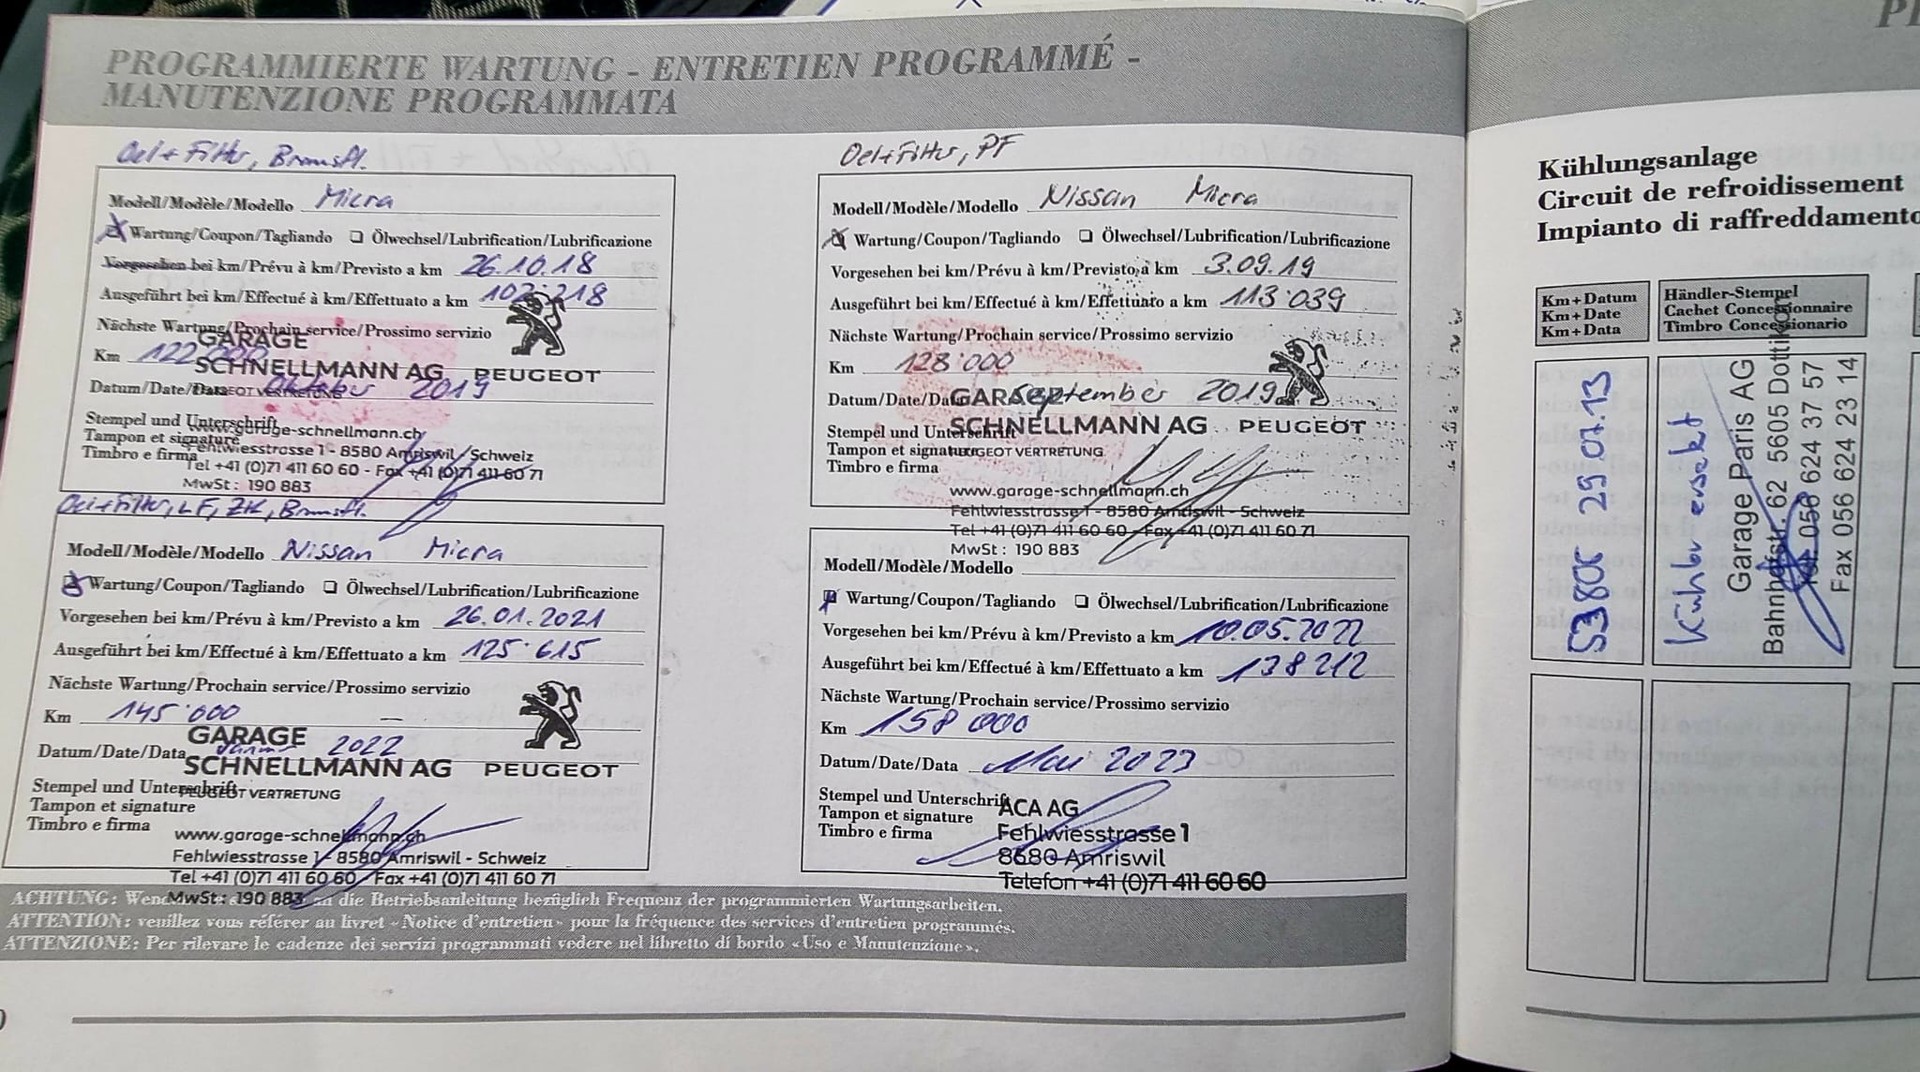 PROGRAMMIERTE WARTUNG - ENTRETIEN PROGRAMMÉ -
MANUTENZIONE PROGRAMMATA
Oel+Filter, Bremsfl.
Modell/Modèle/Modello Micra
Wartung/Coupon/Tagliando Ölwechsel/Lubrification/Lubrificazione
Vorgesehen bei km/Prévu à km/Previsto a km 26.10.18
Ausgeführt bei km/Effectué à km/Effettuato a km 102'218
Nächste Wartung/Prochain service/Prossimo servizio
Km 122'000
Datum/Date/Data Oktober 2019
Stempel und Unterschrift
Tampon et signature
Timbro e firma
GARAGE
SCHNELLMANN AG PEUGEOT
PEUGEOT VERTRETUNG
www.garage-schnellmann.ch
Fehlwiesstrasse 1 - 8580 Amriswil - Schweiz
Tel +41 (0)71 411 60 60 - Fax +41 (0)71 411 60 71
MwSt : 190 883
Oel+Filter, PF
Modell/Modèle/Modello Nissan Micra
Wartung/Coupon/Tagliando Ölwechsel/Lubrification/Lubrificazione
Vorgesehen bei km/Prévu à km/Previsto à km 3.09.19
Ausgeführt bei km/Effectué à km/Effettuato a km 113'039
Nächste Wartung/Prochain service/Prossimo servizio
Km 128'000
Datum/Date/Data September 2019
Stempel und Unterschrift
Tampon et signature
Timbro e firma
GARAGE
SCHNELLMANN AG PEUGEOT
PEUGEOT VERTRETUNG
www.garage-schnellmann.ch
Fehlwiesstrasse 1 - 8580 Amriswil - Schweiz
Tel +41 (0)71 411 60 60 - Fax +41 (0)71 411 60 71
MwSt : 190 883
Oel+Filter, LF, ZK, Bremsfl.
Modell/Modèle/Modello Nissan Micra
Wartung/Coupon/Tagliando Ölwechsel/Lubrification/Lubrificazione
Vorgesehen bei km/Prévu à km/Previsto a km 26.01.2021
Ausgeführt bei km/Effectué à km/Effettuato a km 125'615
Nächste Wartung/Prochain service/Prossimo servizio
Km 145'000
Datum/Date/Data 2022
Stempel und Unterschrift
Tampon et signature
Timbro e firma
GARAGE
SCHNELLMANN AG PEUGEOT
PEUGEOT VERTRETUNG
www.garage-schnellmann.ch
Fehlwiesstrasse 1 - 8580 Amriswil - Schweiz
Tel +41 (0)71 411 60 60 - Fax +41 (0)71 411 60 71
MwSt : 190 883
Modell/Modèle/Modello
Wartung/Coupon/Tagliando Ölwechsel/Lubrification/Lubrificazione
Vorgesehen bei km/Prévu à km/Previsto a km 10.05.2022
Ausgeführt bei km/Effectué à km/Effettuato a km 138 212
Nächste Wartung/Prochain service/Prossimo servizio
Km 158 000
Datum/Date/Data Mai 2023
Stempel und Unterschrift
Tampon et signature
Timbro e firma
ACA AG
Fehlwiesstrasse 1
8580 Amriswil
Telefon +41 (0)71 411 60 60
ACHTUNG: die Betriebsanleitung bezüglich Frequenz der programmierten Wartungsarbeiten.
ATTENTION: veuillez vous référer au livret «Notice d'entretien» pour la fréquence des services d'entretien programmés.
ATTENZIONE: Per rilevare le cadenze dei servizi programmati vedere nel libretto di bordo «Uso e Manutenzione».
Kühlungsanlage
Circuit de refroidissement
Impianto di raffreddamento
Km+Datum
Km+Date
Km+Data
Händler-Stempel
Cachet Concessionnaire
Timbro Concessionario
53806 29.07.13
Kühler ersetzt
Garage Paris AG
Bahnhofstr. 62 5605 Dottikon
Tel. 056 624 37 57
Fax 056 624 23 14